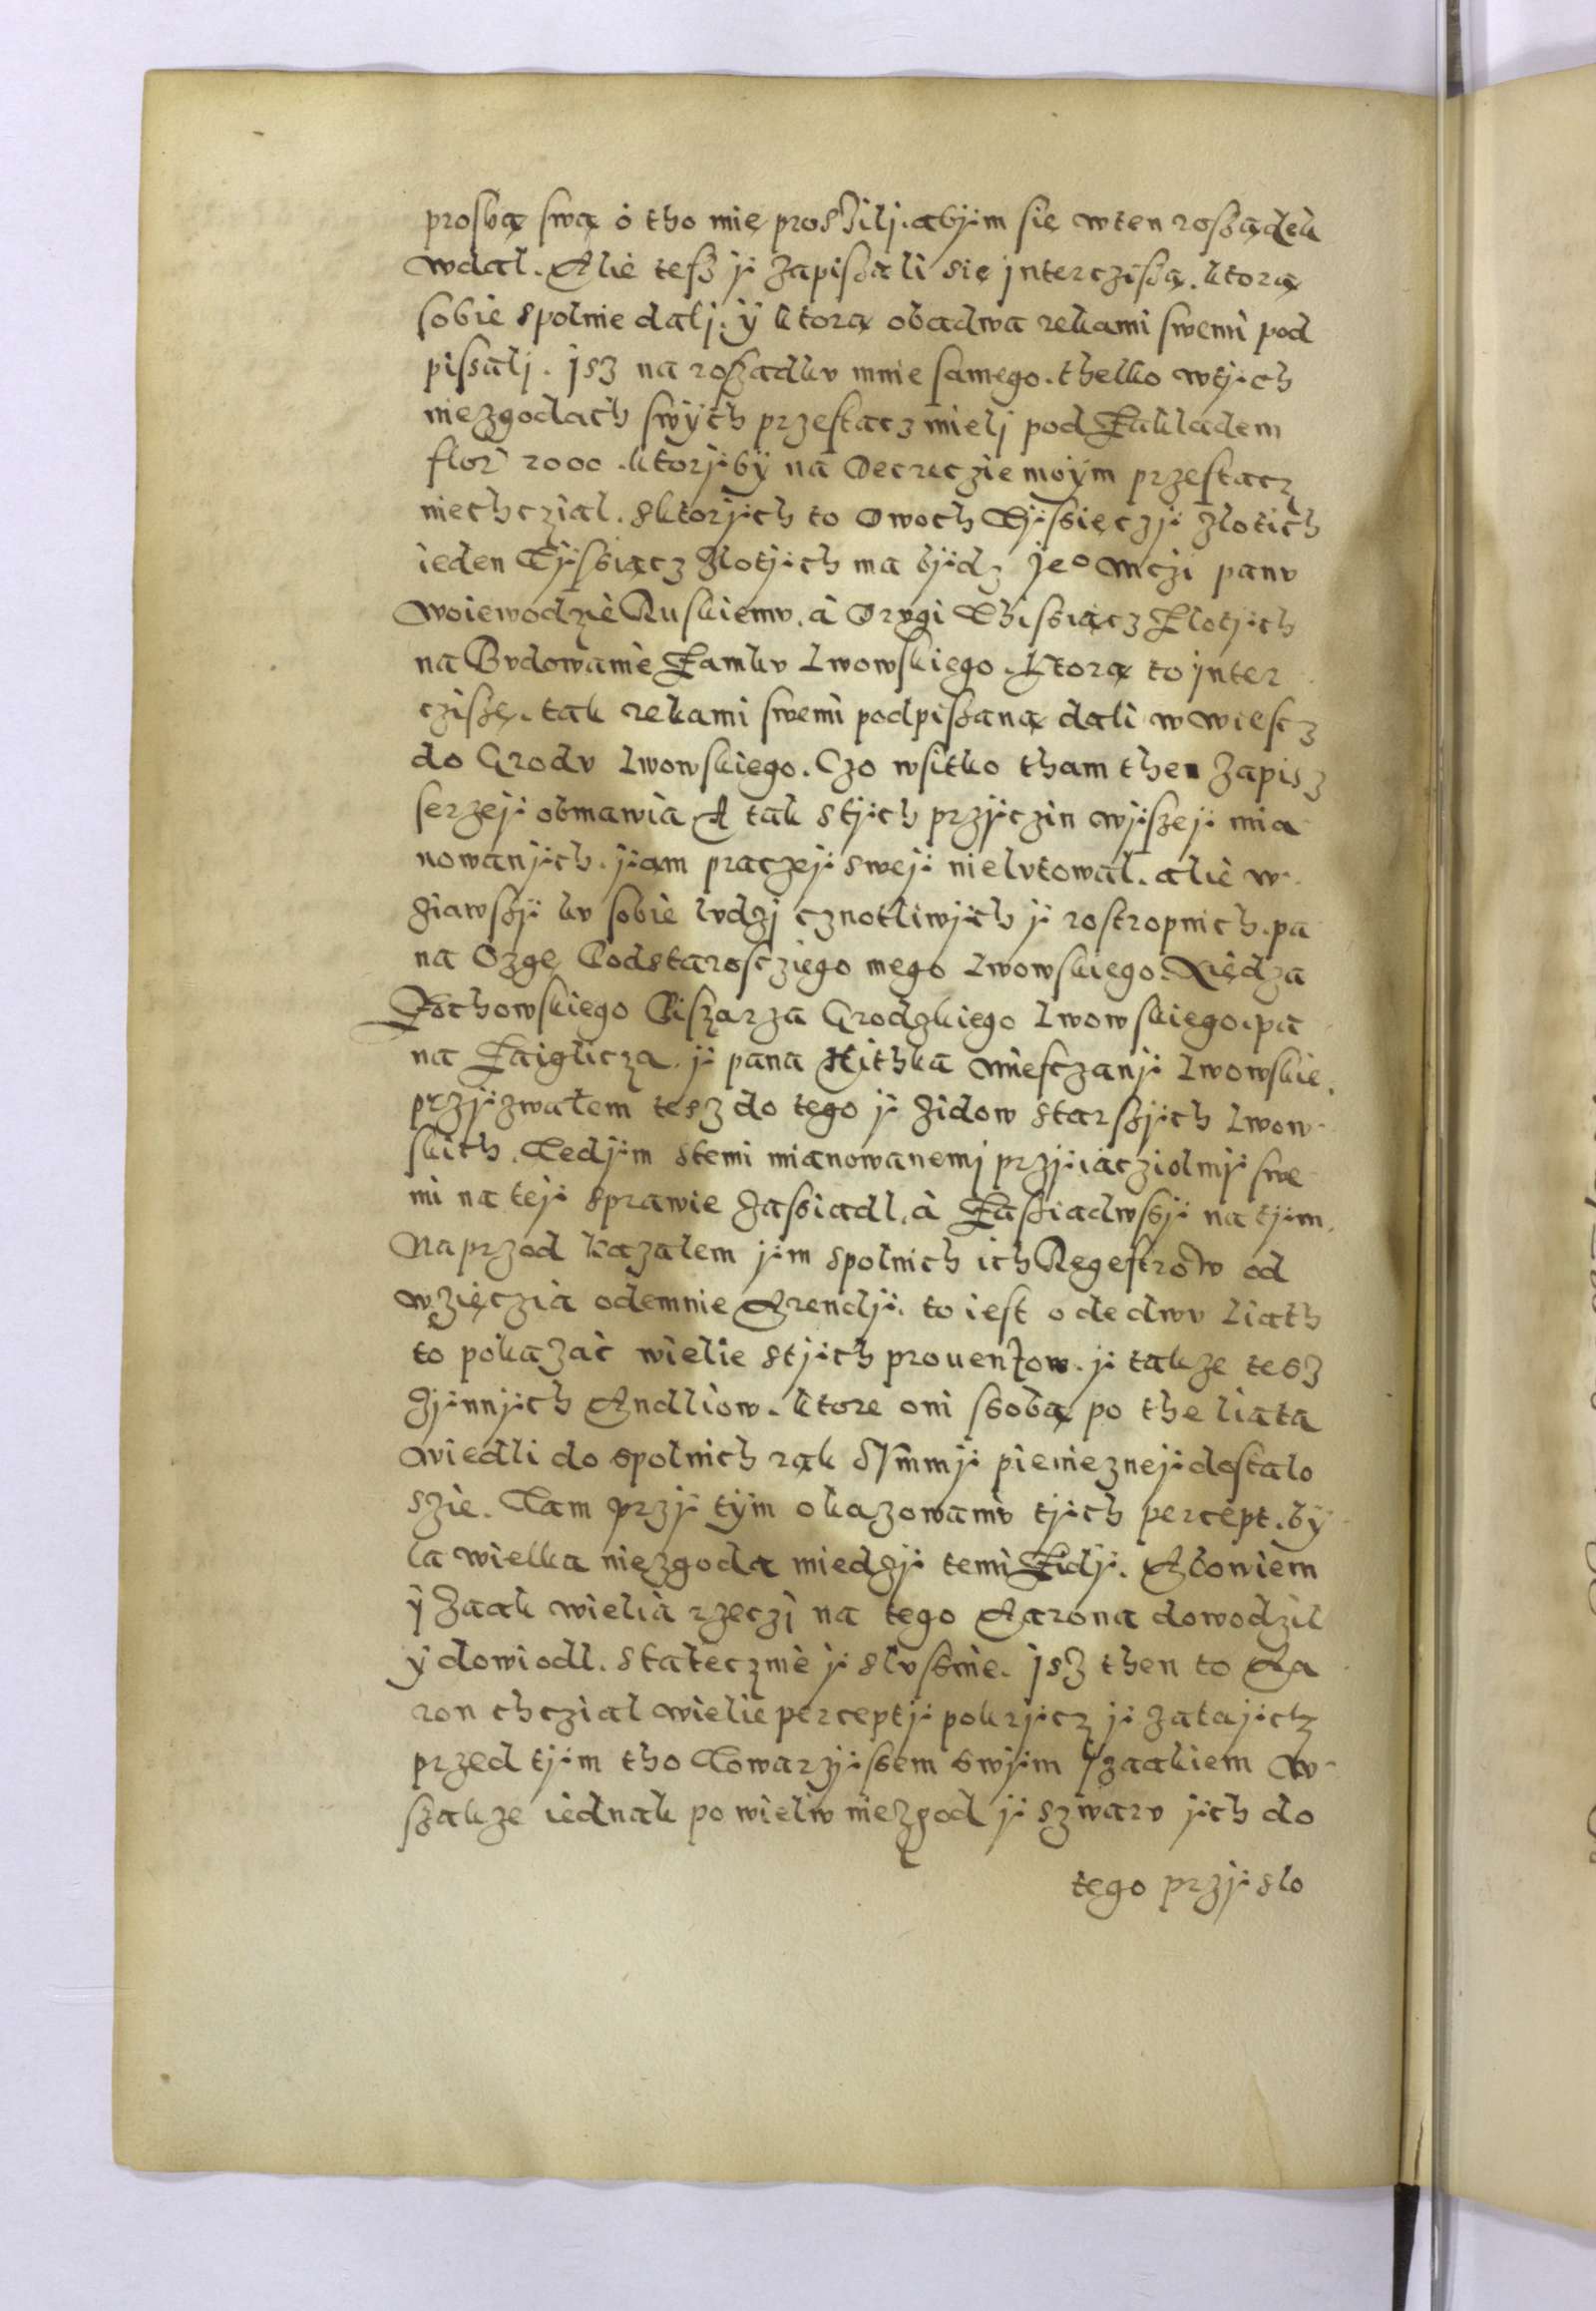 prosbą swą o tho mię prosZilj. abÿm się wten rossądek
wdal. Alie tesz ÿ Zapissali się jntercziszą. ktorą
sobie spolnie dalj. ÿ ktorą obadwa rekami swemi pod
pissalj. jsz na roszadku mnie samego. thelko wtÿch
niezgodach swÿch przestacz mielj pod Zakladem
flor 2000. ktorÿ bÿ na Decreczie moÿm przestacz
niechczial. sktorÿch to Dwoch Tÿssięczÿ Zlotich
ieden Tÿssiącz Zlotÿch ma bÿdz Jeº Mczi panv
Woiewodzie Ruskiemv. a Drvgi Thissiącz Zlotÿch
na Bvdowanie Zamkv Lwowskiego. Ktorą to jnter
cziszę. tak rekami swemi podpissaną dali w wiescz
do Grodv Lwowskiego. Czo wsitko tham then Zapisz
serzeÿ obmawia A tak stÿch przÿczin wÿszeÿ mia
nowanÿch. ÿam praczeÿ sweÿ nielvtowal. alie w
Ziawssÿ kv sobie lvdzj cznotliwÿch ÿ rostropnich. pa
na Ozgę Podstaroscziego mego Lwowskiego. Xiędza
Zochowskiego Piszarza Grodzkiego Lwowskiego. pa
na Zaiglicza ÿ pana Hithka Miesczanÿ Lwowskie.
przÿzwalem tesz do tego ÿ Zidow starssÿch Lwow
skich. Tedÿm stemi mianowanemj przÿiacziolmÿ swe
mi na teÿ sprawie Zassiadl. a Zassiadwssÿ na tÿm.
Naprzod kazalem ÿm spolnich ich Regestrow od
wzięczia odemnie Arendÿ. to iest ode dwv Liath
to pokazać wielie stÿch prouentow. ÿ takze tesz
Zÿnnÿch Andliow. ktore oni ssobą po the liata
wiedli do spolnich rąk SVmmÿ pienieznej dostalo
szie. Tam przÿ tÿm okazowaniv tÿch percept. bÿ
la wielka niezgoda miedzÿ temi Zidÿ. Abowiem
ÿZaak wielia rzeczj na tego Aarona dowodzil
ÿ dowiodl. statecznie ÿ slvssnie. jsz then to Aa
ron chczial wielie perceptÿ pokrÿcz ÿ Zatajicz
przed tÿm tho Towarzÿssem swÿm Jzaakiem W
szakze iednak po wieliw niezgod ÿ szwarv jich do
tego przÿslo